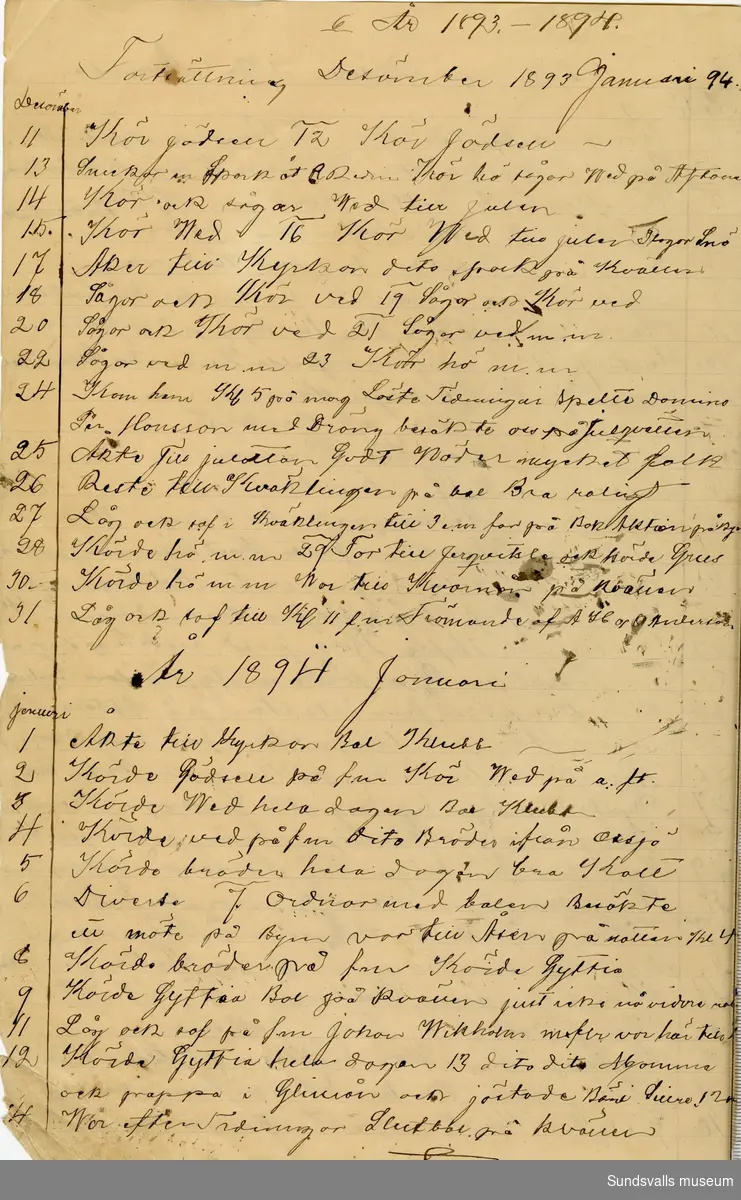 6 År 1893. – 1894.
Fortsättning Desömber 1893 Januari 94.
Desömber
11 Kör jödsell 12 Kör Jödsell –
13 Snickar en Spark åt Kör hö sågar Wed på Aftonen
14 Kör ock sågar Wed till julen
15. Kör Wed 16 Kör Wed till julen Plogar Snö
17 Åker till Kyrkan dito spark på Kvällen
18 Sågar ock Kör ved 19 Sågar ock Kör ved
20 Sågar ock Kör ved 21 Sågar ved m.m.
22 Sågar ved m.m 23 Kör hö m.m
24 Kom hem Kl 5 på morg Läste Tidningar Spelte Domino
Per Hansson med Dräng besökte oss på Julqvällen
25 Åkte Till julottan Godt Wäder mycket folk
26 Reste till Kväklingen på bal Bra roligt
27 Låg ock sof i Kväklingen till 3 e.m for på Bok Aktion på
28 Körde hö m.m 29 For till ock körde Grus
30.- Körde hö m m War till Kvarnen på Kvällen
31 Låg ock sof till Kl 11 f.m Främande af Anderson
År 1894 Januari
januari
1 Åkte till Kyrkan Bal Klubb
2 Körde Gödsell på f.m Kör Wed på a. ft.
3 Körde Wed hela dagen Bal Klubb
4 Körde ved på f.m dito Bräder ifrån Ossjö
5 Körde bräder hela dagen bra Kallt
6 Diverse 7 Ordnar med balen Besökte
ett möte på Byn var till Åsen på natten Kl 4
8 Körde bräder på f.m Körde Gyttia
9 Körde Gyttia Bal på Kvällen just icke nå vidare
11 Låg ock sof på f.m Johan Wikholm m.flr var här
12 Körde Gyttia hela dagen 13 dito dito Mamma
ock pappa i Glimån ock jästade
14 War efter Tidningar Slutbal på Kvällen
Sundsvalls museum